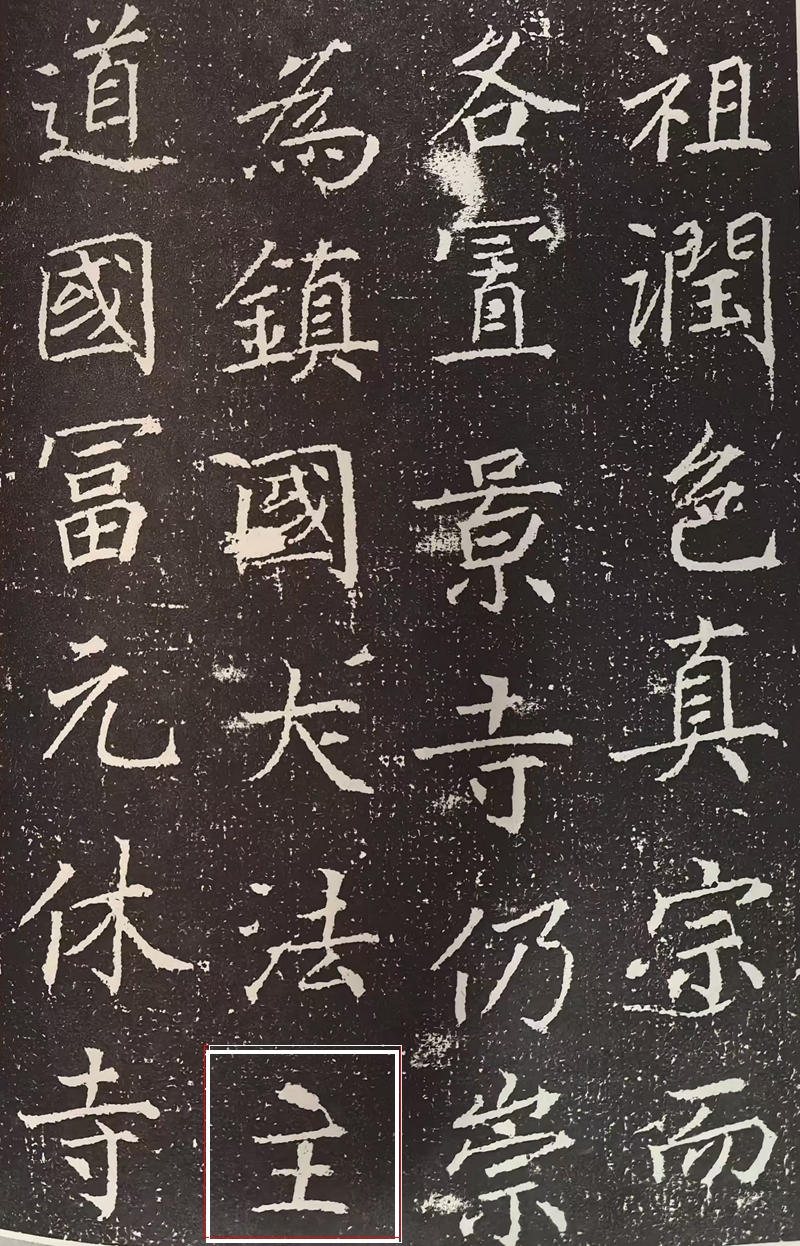 祖潤色真宗而
各置景寺仍崇
為鎮國大法主
道國冨元休寺